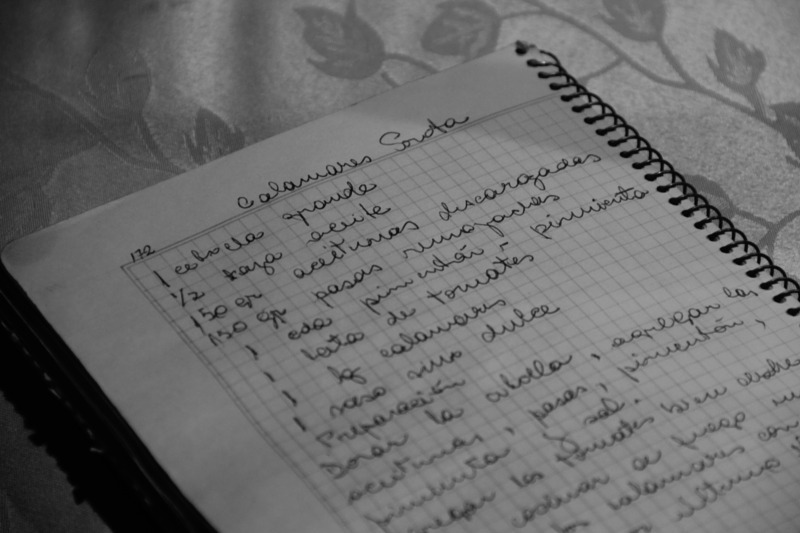 Calamares Costa
172
1 cebolla grande
1/2 taza aceite
150 gr aceitunas descarozadas
150 gr pasas remojadas
1 cda pimentón - pimienta
1 lata de tomates
1 kg calamares
1 vaso vino dulce
Preparación
Dorar la cebolla, agregar las
aceitunas, pasas, pimentón,
pimienta y sal.
los tomates bien
cocinar a fuego
calamares con
ultimo